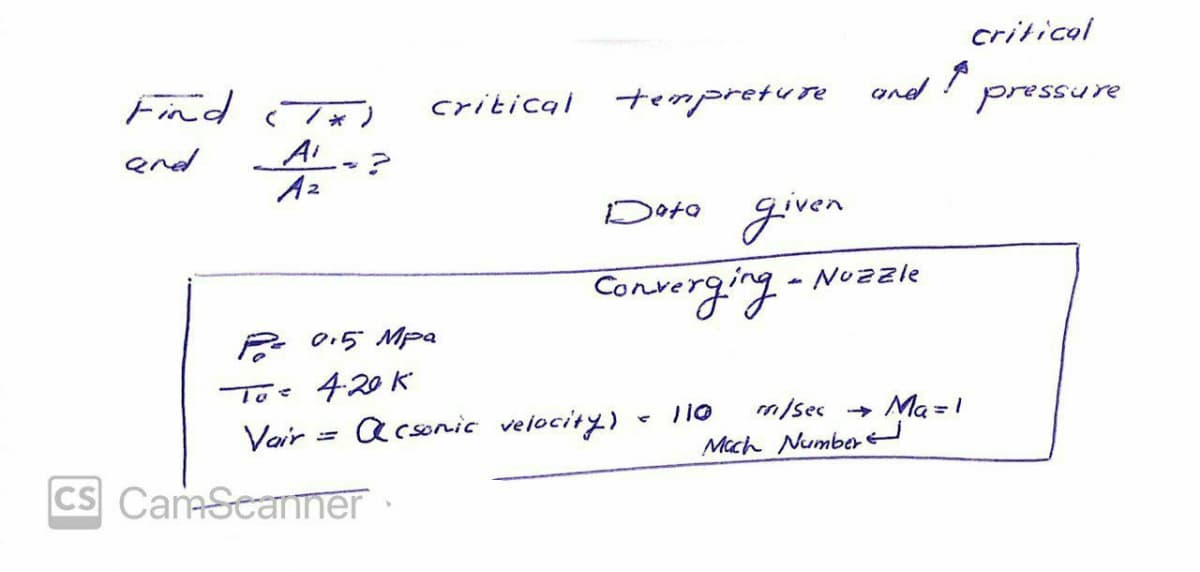 critical
Find (T*) critical tempreture and ↑ pressure
and A1/A2 = ?
Data given
Converging - Nozzle
Po = 0.5 Mpa
To = 420 K
Vair = a (sonic velocity) = 110 m/sec → Ma = 1
Mach Number ↵
CS CamScanner